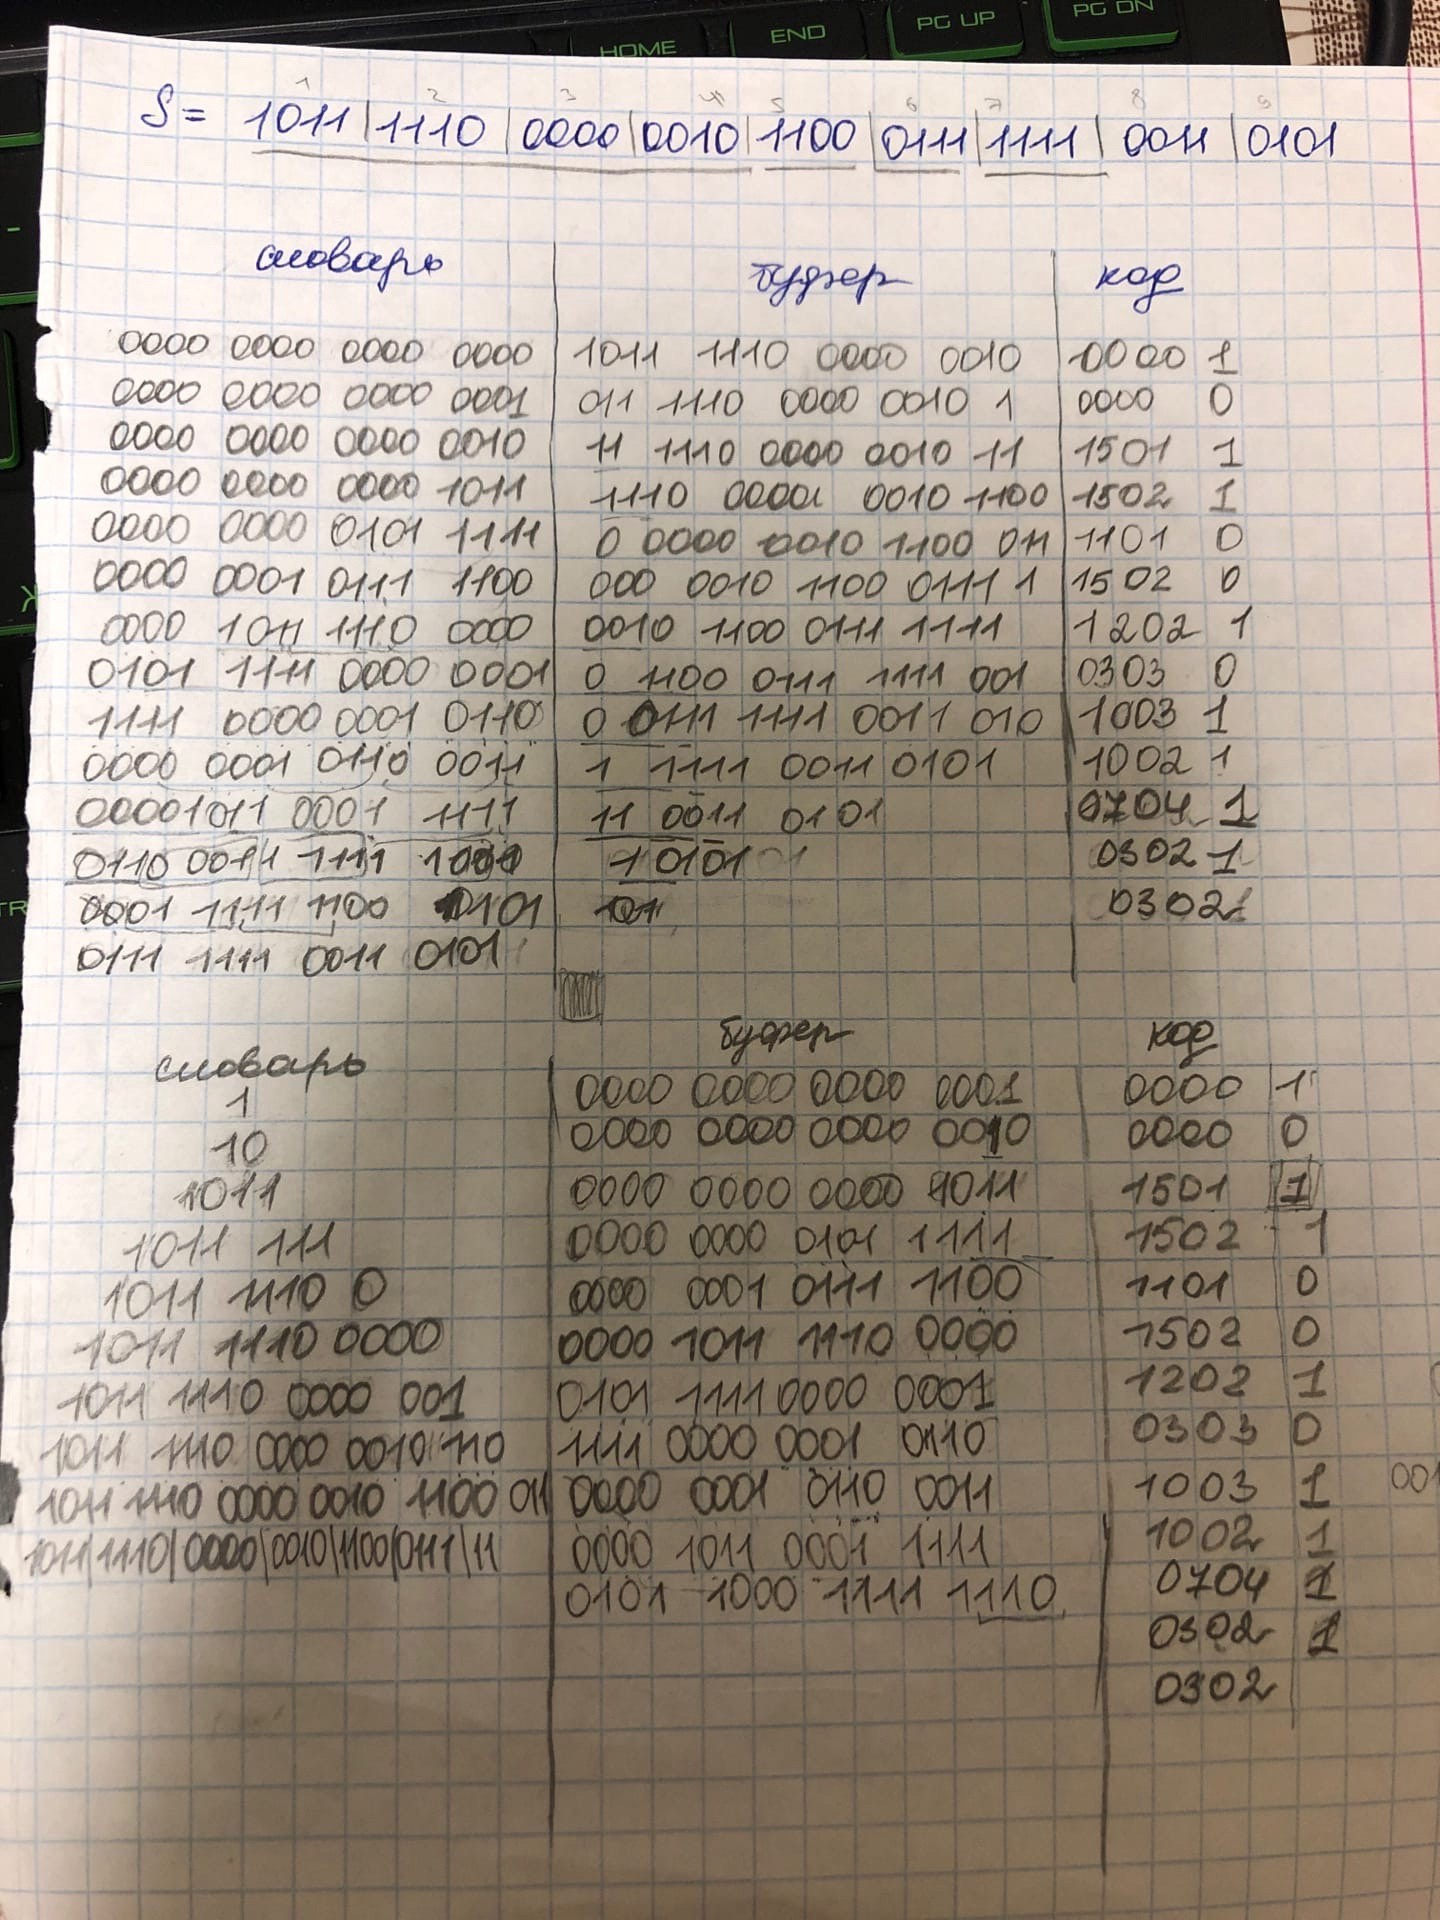 HOME END PG UP PG DN
1 2 3 4 5 6 7 8 9
S = 1011 | 1110 | 0000 | 0010 | 1100 | 0111 | 1111 | 0011 | 0101
словарь буфер код
0000 0000 0000 0000 1011 1110 0000 0010 0000 1
0000 0000 0000 0001 011 1110 0000 0010 1 0000 0
0000 0000 0000 0010 11 1110 0000 0010 11 1501 1
0000 0000 0000 1011 1110 0000 0010 1100 1502 1
0000 0000 0101 1111 0 0000 0010 1100 011 1101 0
0000 0001 0111 1100 000 0010 1100 0111 1 1502 0
0000 1011 1110 0000 0010 1100 0111 1111 1202 1
0101 1111 0000 0001 0 1100 0111 1111 001 0303 0
1111 0000 0001 0110 0 0111 1111 0011 010 1003 1
0000 0001 0110 0011 1 1111 0011 0101 1002 1
0000 1011 0001 1111 11 0011 0101 0704 1
0110 0011 1111 1001 1 0101 0302 1
0001 1111 1100 0101 101 0302
0111 1111 0011 0101
словарь буфер код
1 0000 0000 0000 0001 0000 1
10 0000 0000 0000 0010 0000 0
1011 0000 0000 0000 1011 1501 1
1011 111 0000 0000 0101 1111 1502 1
1011 1110 0 0000 0001 0111 1100 1101 0
1011 1110 0000 0000 1011 1110 0000 1502 0
1011 1110 0000 001 0101 1111 0000 0001 1202 1
1011 1110 0000 0010 110 1111 0000 0001 0110 0303 0
1011 1110 0000 0010 1100 011 0000 0001 0110 0011 1003 1 001
1011|1110|0000|0010|1100|0111|11 0000 1011 0001 1111 1002 1
0101 1000 1111 1110 0704 1
0302 1
0302